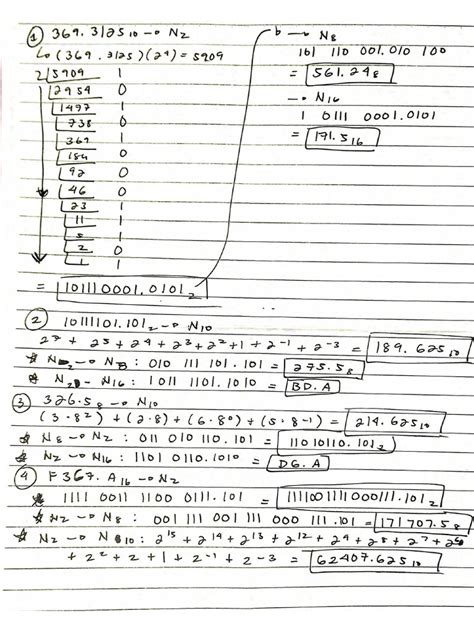 ① 369.3125₁₀ → N₂
↳ (369.3125)(2⁴) = 5909
2 5909 1
2954 0
1477 1
738 0
369 1
184 0
92 0
46 0
23 1
11 1
5 1
2 0
1 1
= 101110001.0101₂
→ N₈
101 110 001.010 100
= 561.24₈
→ N₁₆
1 0111 0001.0101
= 171.5₁₆
② 10111101.101₂ → N₁₀
2⁷ + 2⁵ + 2⁴ + 2³ + 2² + 1 + 2⁻¹ + 2⁻³ = 189.625₁₀
* N₂ → N₈ : 010 111 101.101 = 275.5₈
* N₂ → N₁₆ : 1011 1101.1010 = BD.A
③ 326.5₈ → N₁₀
(3·8²) + (2·8) + (6·8⁰) + (5·8⁻¹) = 214.625₁₀
* N₈ → N₂ : 011 010 110.101 = 11010110.101₂
* N₂ → N₁₆ : 1101 0110.1010 = D6.A
④ F367.A₁₆ → N₂
* 1111 0011 1100 0111.101 = 1111001111000111.101₂
* N₂ → N₈ : 001 111 001 111 000 111.101 = 171707.5₈
* N₂ → N₁₀ : 2¹⁵ + 2¹⁴ + 2¹³ + 2¹² + 2⁹ + 2⁸ + 2⁷ + 2⁶
+ 2² + 2 + 1 + 2⁻¹ + 2⁻³ = 62407.625₁₀